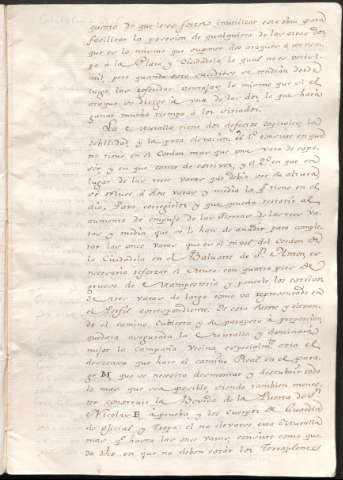 guiente de que le es forzoso inutilizar esta obra para
facilitar la posesion de qualquiera de las otras dos
que es lo mismo que suponer dos ataques a un tiem-
po a la Plaza y Ciudadela, lo qual no es verisi-
mil, pero quando este sucediere se tendrán desde
luego las referidas ventajas, lo mismo que si el
ataque se dirige a una de las dos, lo que hará
ganar mucho tiempo a los sitiados.
La muralla tiene dos defectos capitales, la
debilidad y la poca elevacion, el 1º consiste en que
no tiene en el Cordon mas que una vara de espe-
sor y en que carece de estrivos, y el 2º en que en
lugar de las once varas que debia ser su altura
se reduce a dos varas y media la que tiene en el
dia, Para corregirlos y que pueda resistir al
aumento de empuje de las tierras de las tres va-
ras y media, que se le han de añadir para comple-
tar las once varas que es el nivel del Cordon de
la Ciudadela en el Baluarte de Sn. Anton, es
necesario reforzar el muro con quatro pies de
grueso de Mamposteria y ponerle los estrivos
de tres varas de largo como va representado en
el Perfil correspondiente. De esta suerte y elevan-
do el camino cubierto y su parapeto a proporcion
quedará asegurada la muralla y dominará
mejor la Campaña vecina, especialmte. toda el
desecava que hace el camino Real en el para-
ge M que se necesita desmontar y descubrir todo
lo mas que sea posible, siendo tambien menes-
ter construir la Boveda de la Puerta de Sn.
Nicolas E a prueba, y los Cuerpos de Guardia
de oficial y Tropa: el no elevarse esta Muralla
mas que hasta las once varas, consiste como que-
da dho. en que no deben estar los Terraplenes